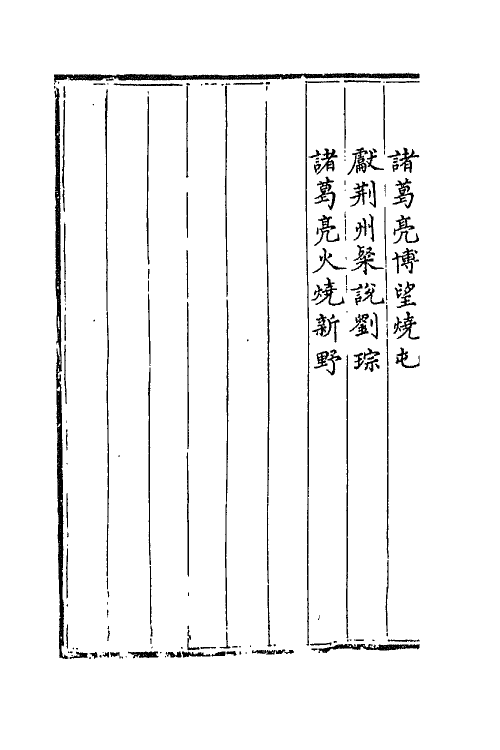 諸葛亮博望燒屯
獻荆州粲說劉琮
諸葛亮火燒新野